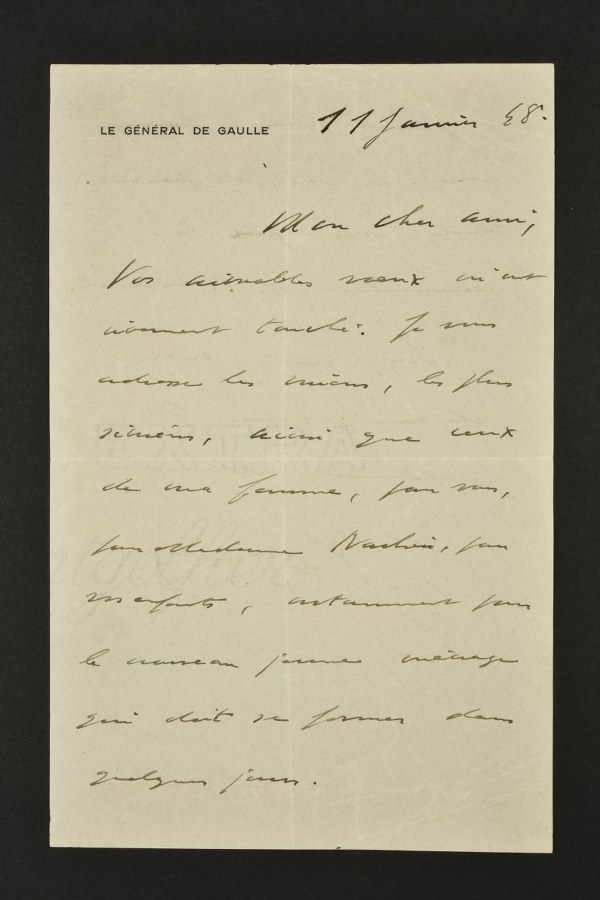 LE GÉNÉRAL DE GAULLE
11 Janvier 48.
Mon cher ami,
Vos aimables vœux m'ont
vivement touché. Je vous
adresse les miens, les plus
sincères, ainsi que ceux
de ma femme, pour vous,
pour Madame pour
vos enfants, notamment pour
le nouveau jeune ménage
qui doit se former dans
quelques jours.